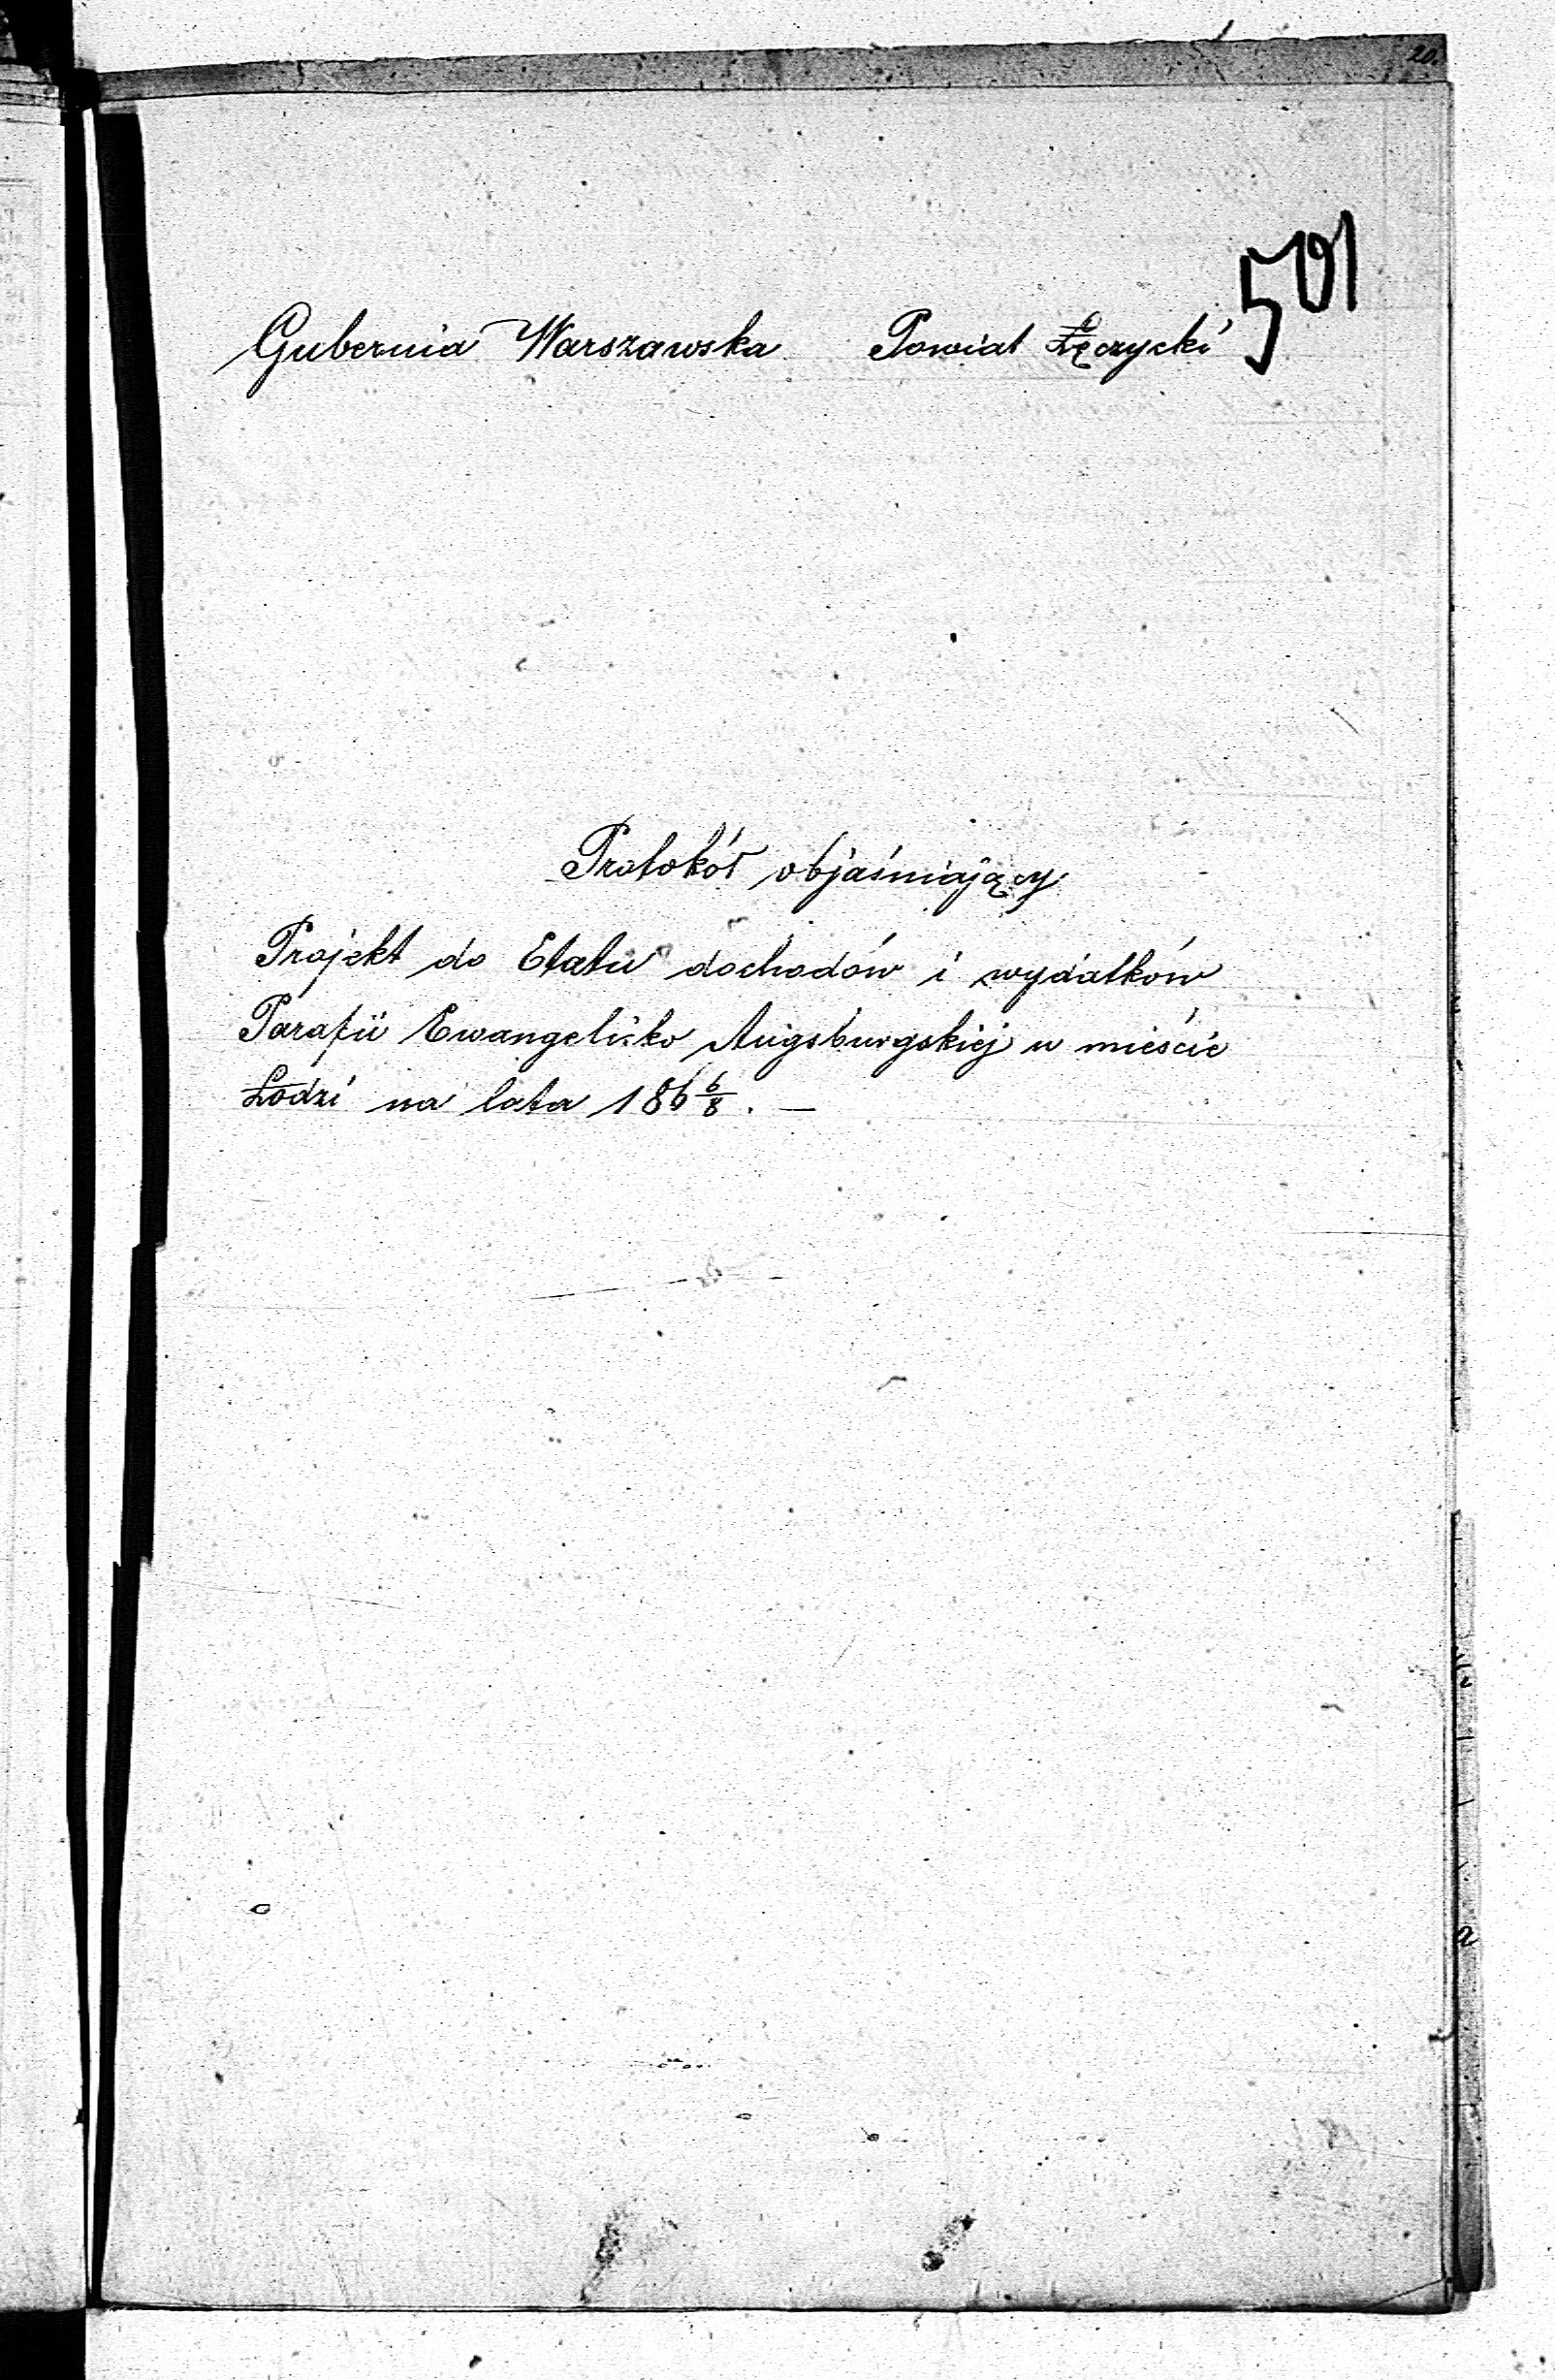 20.
501
Gubernia Warszawska Powiat Łęczycki
Protokół objaśniający
Projekt do Etatu dochodów i wydatków
Parafii Ewangelicko Augsburgskiej w mieście
Łodzi na lata 186 6/8. —